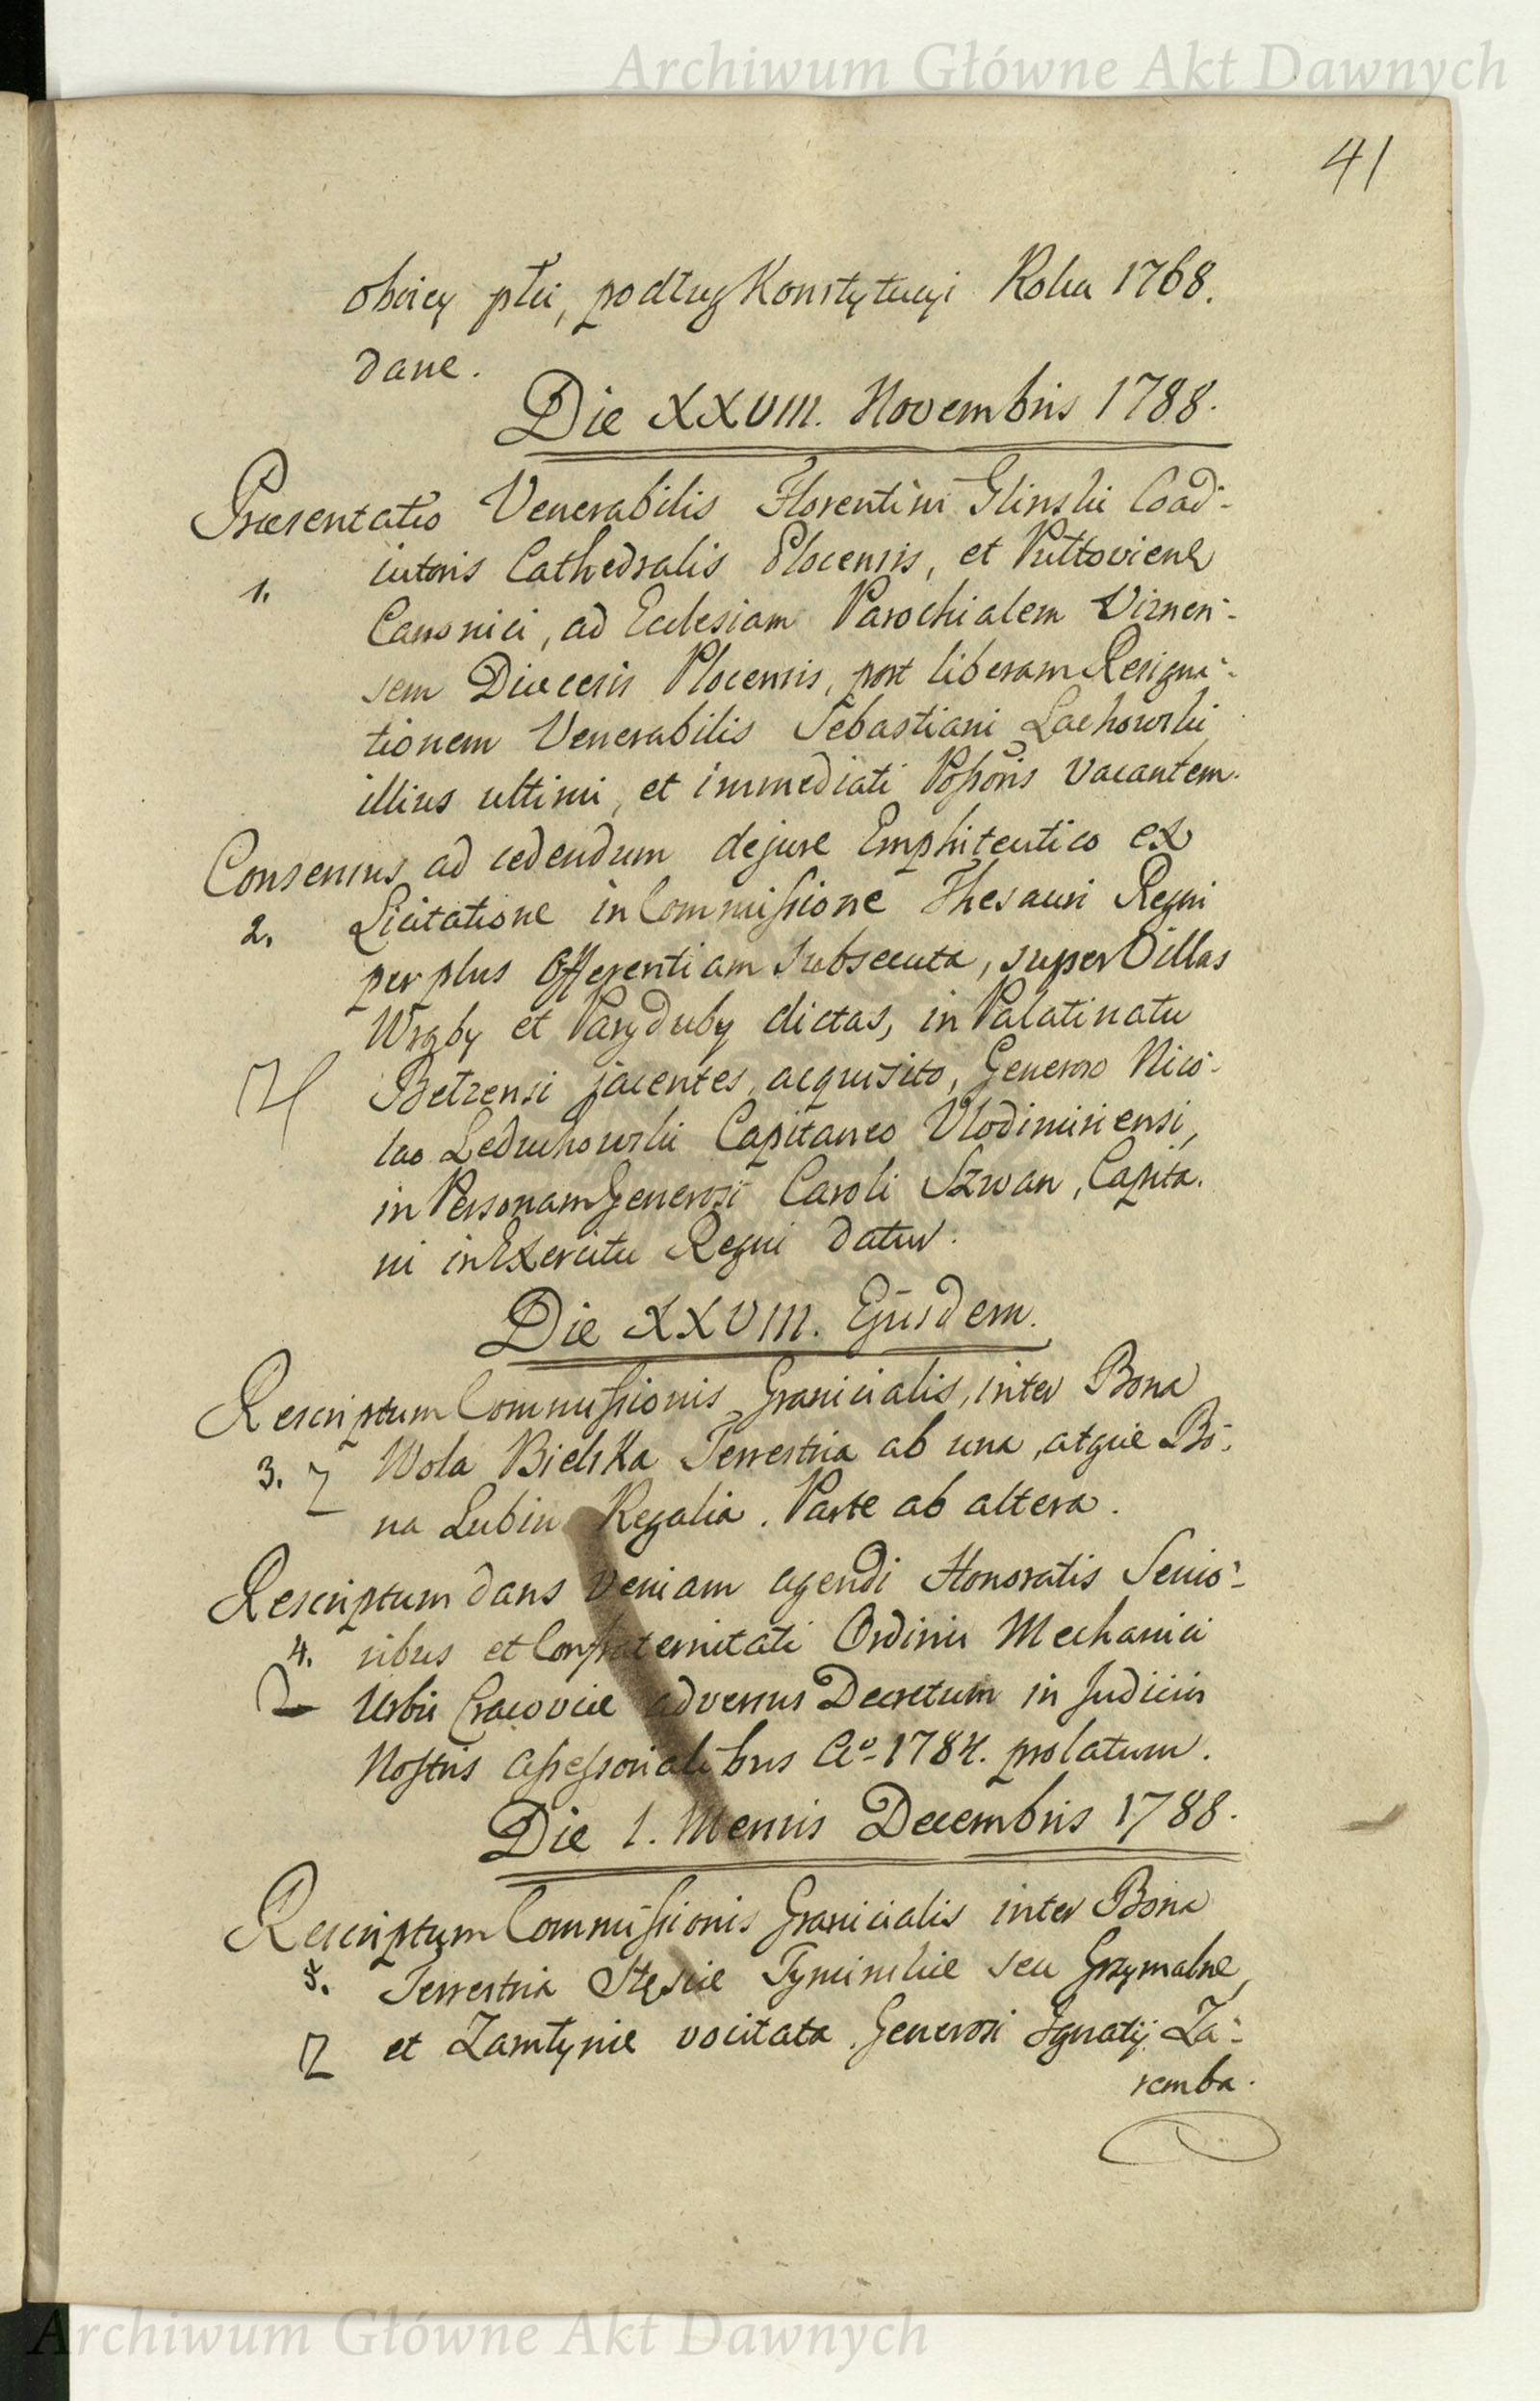 Archiwum Główne Akt Dawnych
41
oboiey płci, podług Konstytucyi Roku 1768.
dane.
Die XXVIII. Novembris 1788.
Præsentatio Venerabilis Florentini Glinski Coad-
1. iutoris Cathedralis Plocensis, et Pultoviens
Canonici, ad Ecclesiam Parochialem Viznen-
sem Diœcesis Plocensis, post liberam Resigna-
tionem Venerabilis Sebastiani Lachowski
illius ultimi, et immediati Possoris vacantem.
Consensus ad cedendum de jure Emphiteutico ex
2. Licitatione in Commissione Thesauri Regni
per plus Offerentiam subsecuta, super Villas
Wrzby et Paryduby dictas, in Palatinatu
Bełzensi jacentes, acquisito, Generoso Nico-
lao Leduchowski Capitaneo Vlodimiriensi,
in Personam Generosi Caroli Szwan, Capita-
ni in Exercitu Regni datur.
Die XXVIII. Ejusdem.
Rescriptum Commissionis Granicialis, inter Bona
3. Wola Bielska Terrestria ab una, atque Bo-
na Lubin Regalia. Parte ab altera.
Rescriptum dans veniam agendi Honoratis Senio-
4. ribus et Confraternitati Ordinis Mechanici
Urbis Cracoviæ adversus Decretum in Judiciis
Nostris Assessorialibus Aº 1784. prolatum.
Die 1. Mensis Decembris 1788.
Rescriptum Commissionis Granicialis inter Bona
5. Terrestria Stęscie Tyminskie seu Grzymalne,
et Zamłynie vocitata Generosi Ignatij Za-
remba.
Archiwum Główne Akt Dawnych